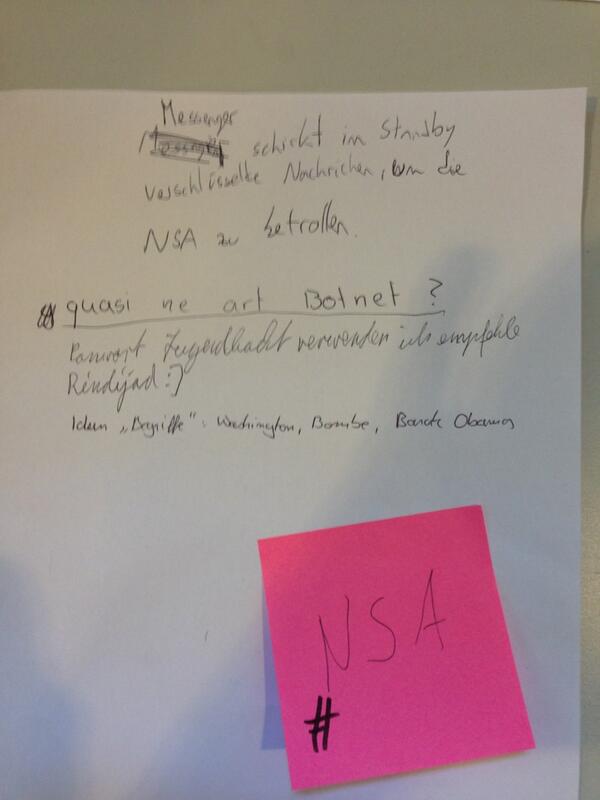 Messenger
schickt im Standby
verschlüsselte Nachrichen, um die
NSA zu betrollen.
quasi ne art Botnet ?
Passwort Jugendhackt verwenden ich empfehle
Rindijad :]
Ideen „Begriffe": Washington, Bombe, Barack Obama
NSA
#